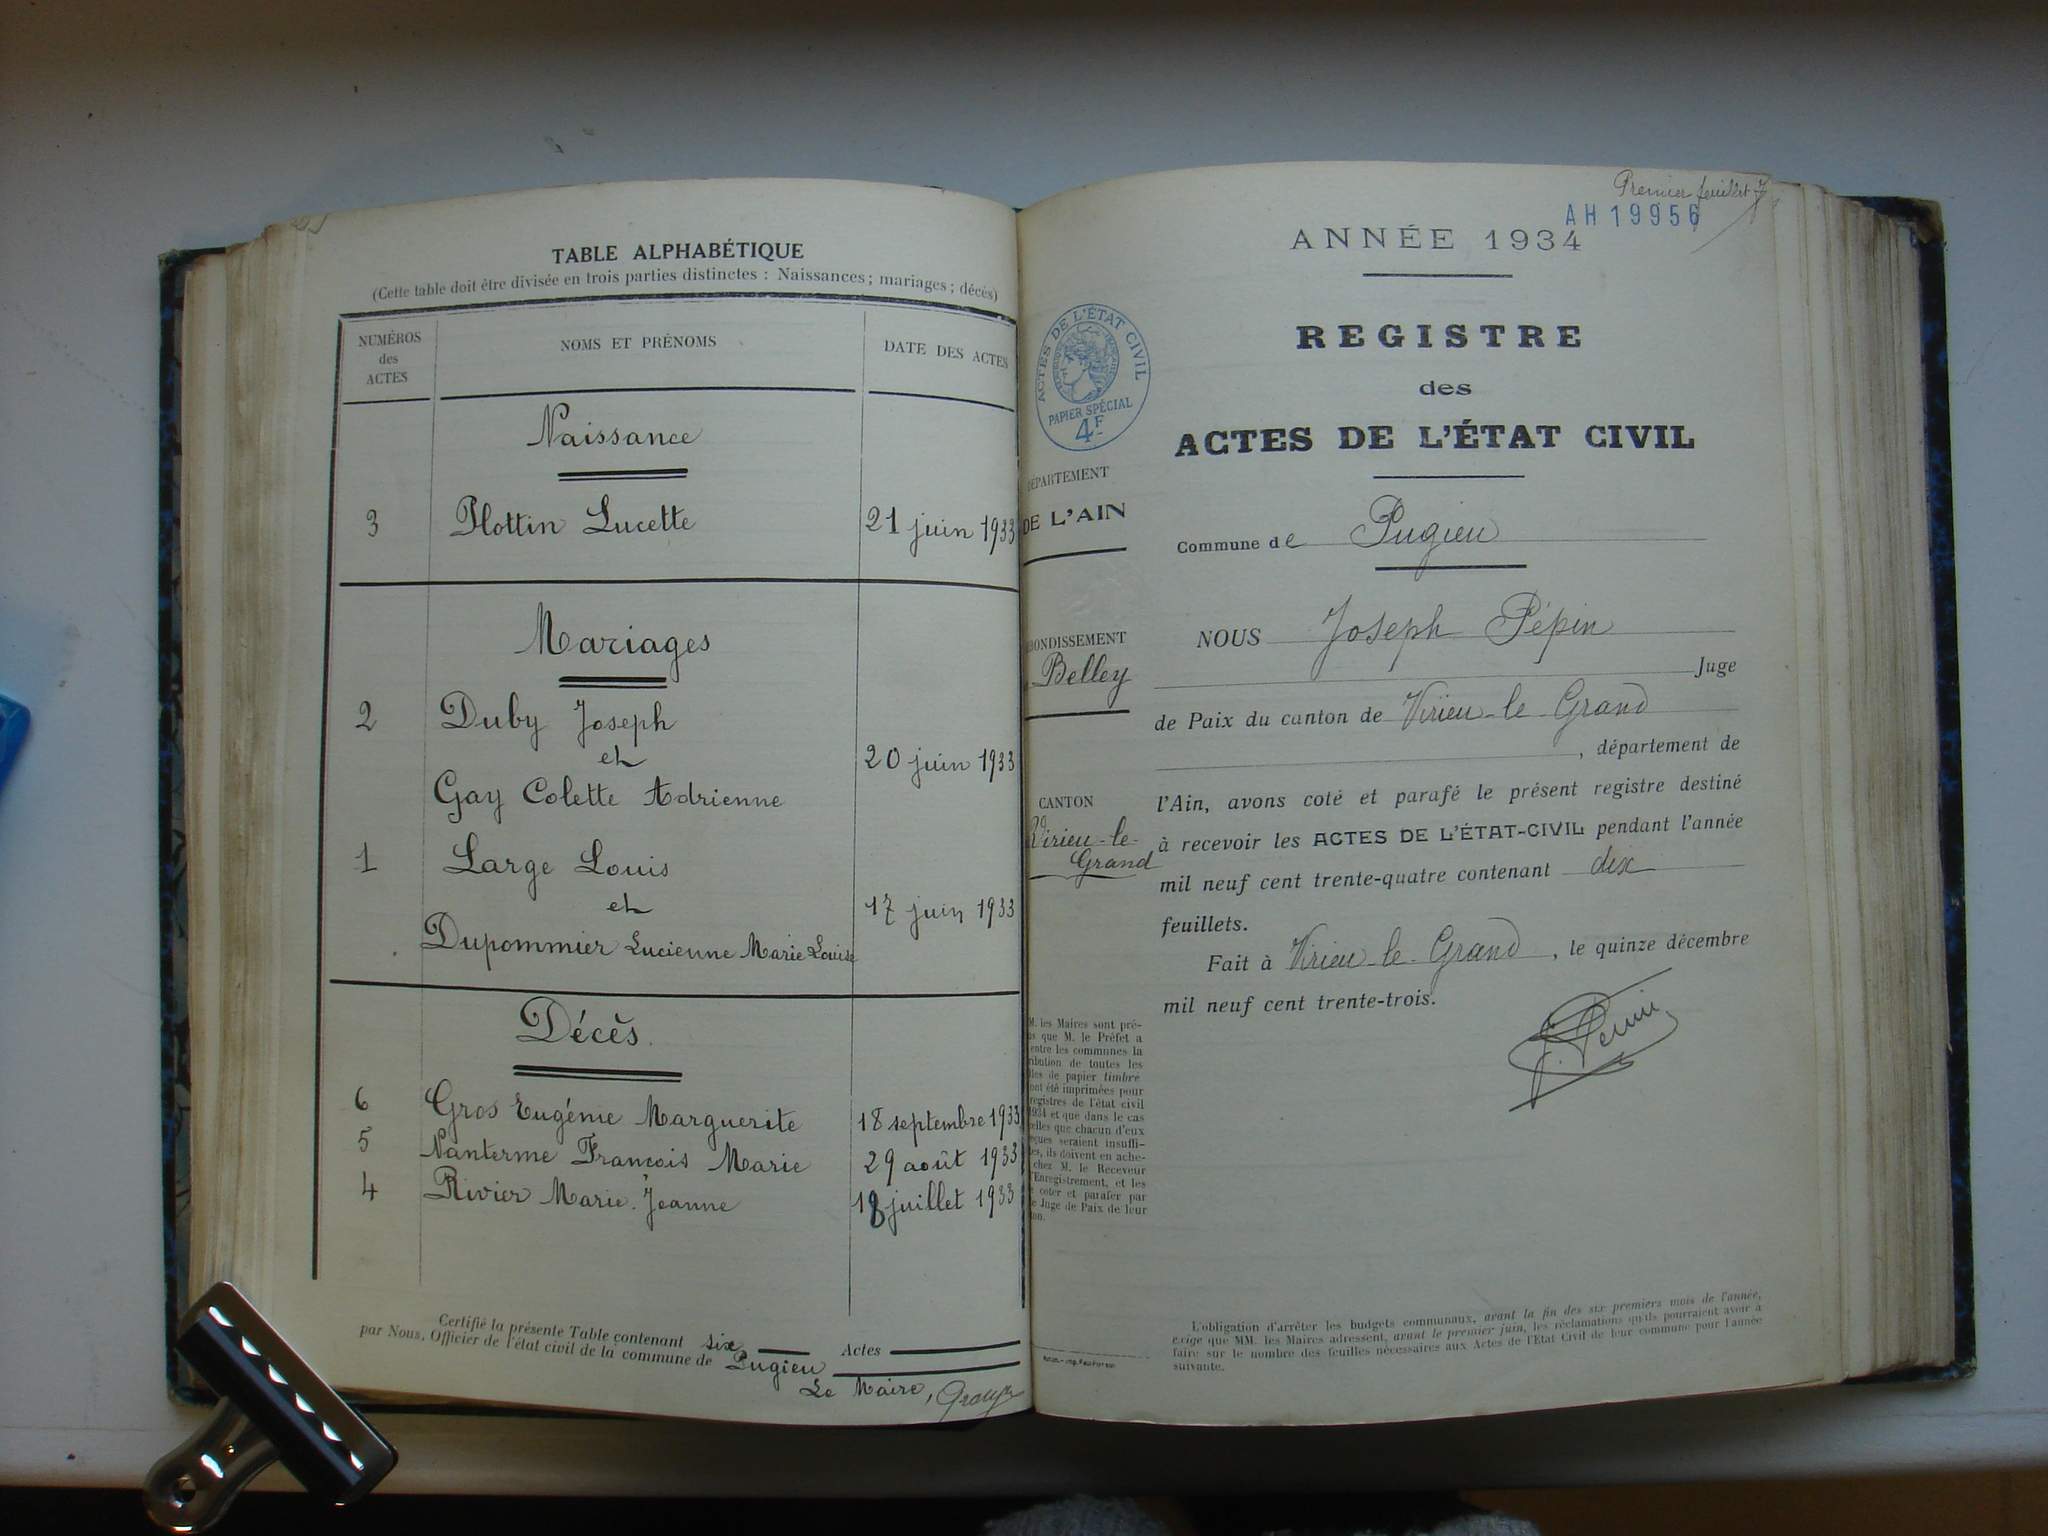 TABLE ALPHABÉTIQUE
(Cette table doit être divisée en trois parties distinctes : Naissances ; mariages ; décès)
NUMÉROS des ACTES
NOMS ET PRÉNOMS
DATE DES ACTES
Naissance
3 Plottin Lucette 21 juin 1933
Mariages
2 Duby Joseph
et
20 juin 1933
Gay Colette Adrienne
1 Large Louis
et
17 juin 1933
Dupommier Lucienne Marie Louise
Décès
6 Gros Eugénie Marguerite 18 septembre 1933
5 Nanterme François Marie 29 août 1933
4 Rivier Marie Jeanne 18 juillet 1933
Certifié la présente Table contenant six Actes
par Nous, Officier de l'état civil de la commune de Pugieu
Le Maire,
Premier feuillet
AH 19956
ANNÉE 1934
REGISTRE
des
ACTES DE L'ÉTAT CIVIL
ACTES DE L'ÉTAT CIVIL
PAPIER SPÉCIAL
4F
DÉPARTEMENT
DE L'AIN
ONDISSEMENT
Belley
CANTON
Virieu-le-
Grand
Commune de Pugieu
NOUS Joseph Pépin
Juge
de Paix du canton de Virieu-le Grand
, département de
l'Ain, avons coté et parafé le présent registre destiné
à recevoir les ACTES DE L'ÉTAT-CIVIL pendant l'année
mil neuf cent trente-quatre contenant dix
feuillets.
Fait à Virieu-le-Grand, le quinze décembre
mil neuf cent trente-trois.
M. les Maires sont pré-
s que M. le Préfet a
entre les communes la
ribution de toutes les
lles de papier timbré
ont été imprimées pour
registres de l'état civil
1934 et que dans le cas
elles que chacun d'eux
eçues seraient insuffi-
es, ils doivent en ache-
chez M. le Receveur
l'Enregistrement, et les
e coter et parafer par
e Juge de Paix de leur
on.
L'obligation d'arrêter les budgets communaux, avant la fin des six premiers mois de l'année,
exige que MM. les Maires adressent, avant le premier juin, les réclamations qu'ils pourraient avoir à
faire sur le nombre des feuilles nécessaires aux Actes de l'Etat Civil de leur commune pour l'année
suivante.